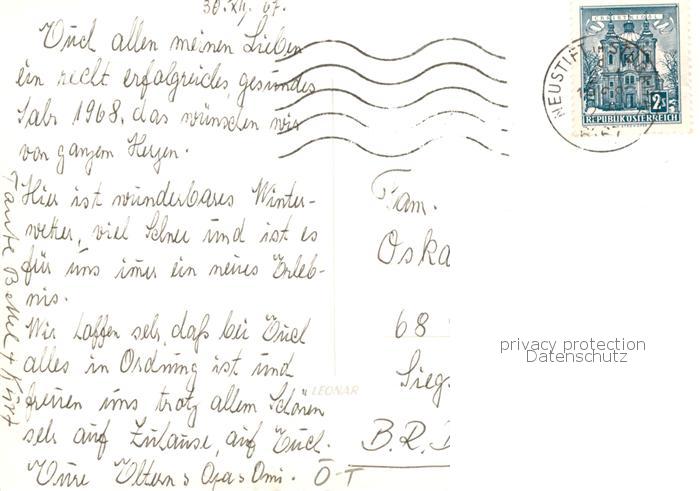 30.XII.67.
Euch allen meinen Lieben
ein recht erfolgreiches, gesundes
Jahr 1968. das wünschen wir
von ganzem Herzen.
Hier ist wunderbares Winter-
wetter, viel Schnee und ist es
für uns imer ein neues Erleb-
nis.
Wir hoffen sehr, daß bei Euch
alles in Ordnung ist und
freuen uns trotz allem Schönen
sehr auf Zuhause, auf Euch.
Eure Eltern & Opa & Omi.
Ö-T
Tante Bettel + Kurt
CHRISTKINDL
2S
REPUBLIK ÖSTERREICH
NEUSTIFT IM STUBAITAL
Fam.
Oska
68
Sieg.
B.R.D
LEONAR
privacy protection
Datenschutz